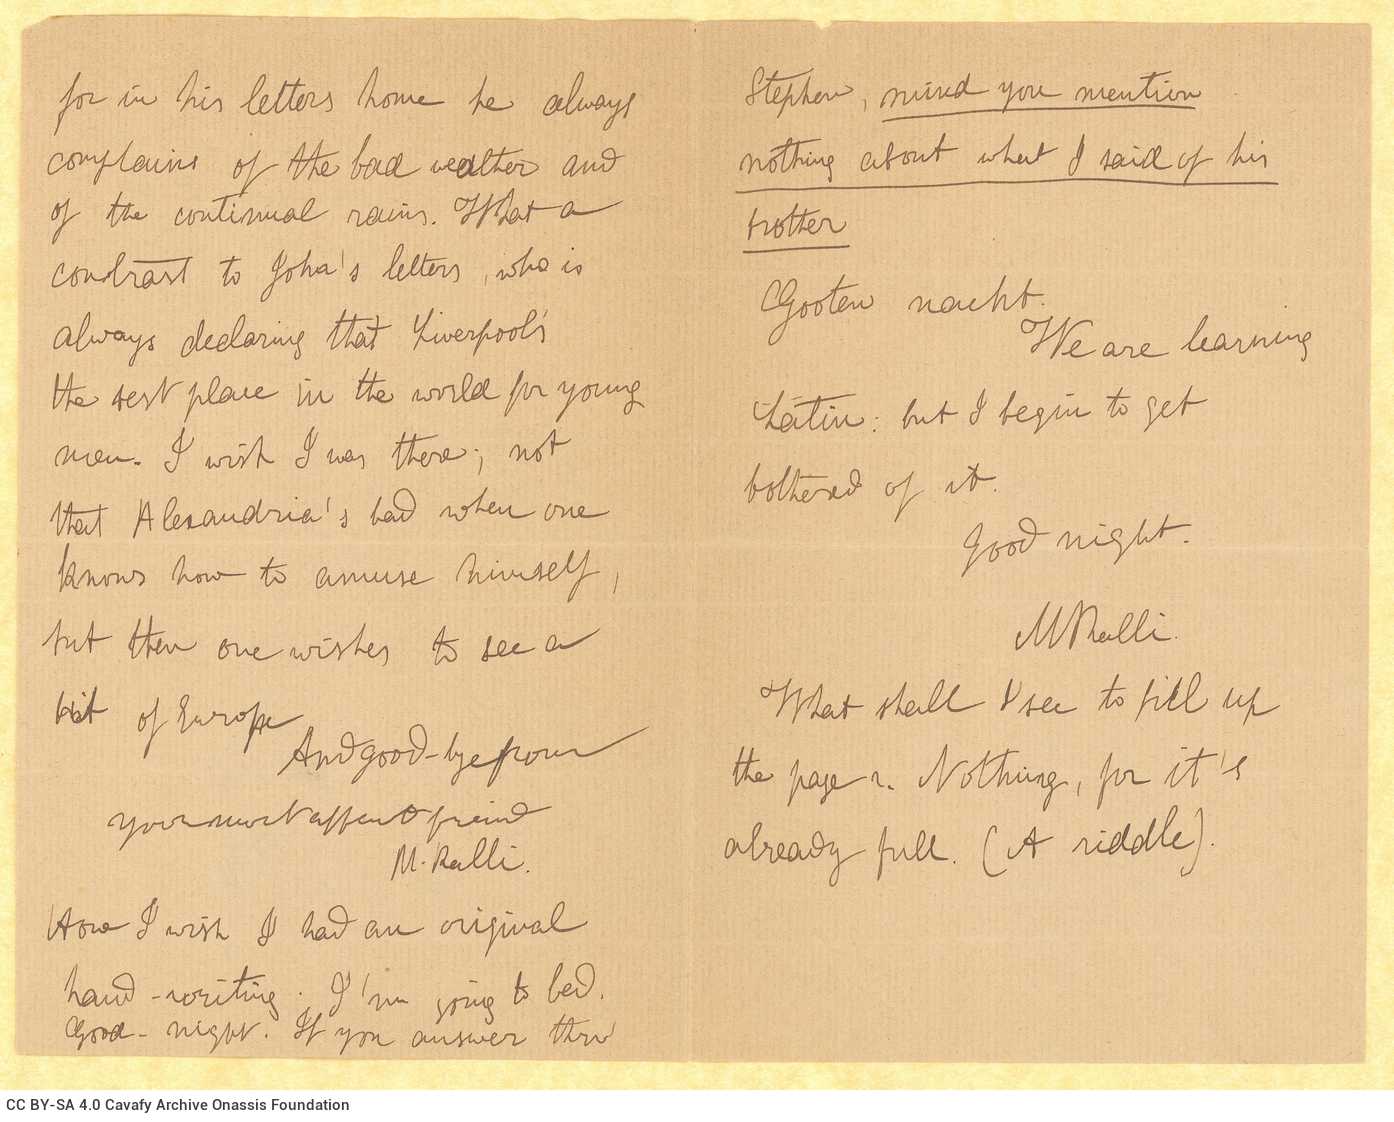 for in his letters home he always
complains of the bad weather and
of the continual rains. What a
contrast to John's letters, who is
always declaring that Liverpool's
the best place in the world for young
men. I wish I was there; not
that Alexandria's bad when one
knows how to amuse himself,
but then one wishes to see a
bit of Europe
And good-bye from
your most affect friend
M. Ralli.
How I wish I had an original
hand-writing. I'm going to bed.
Good-night. If you answer thro'
Stephen, mind you mention
nothing about what I said of his
brother
Gooten nacht.
We are learning
Latin: but I begin to get
bothered of it.
Good night.
M Ralli.
What shall I see to fill up
the page ?. Nothing, for it's
already full. (A riddle).
CC BY-SA 4.0 Cavafy Archive Onassis Foundation